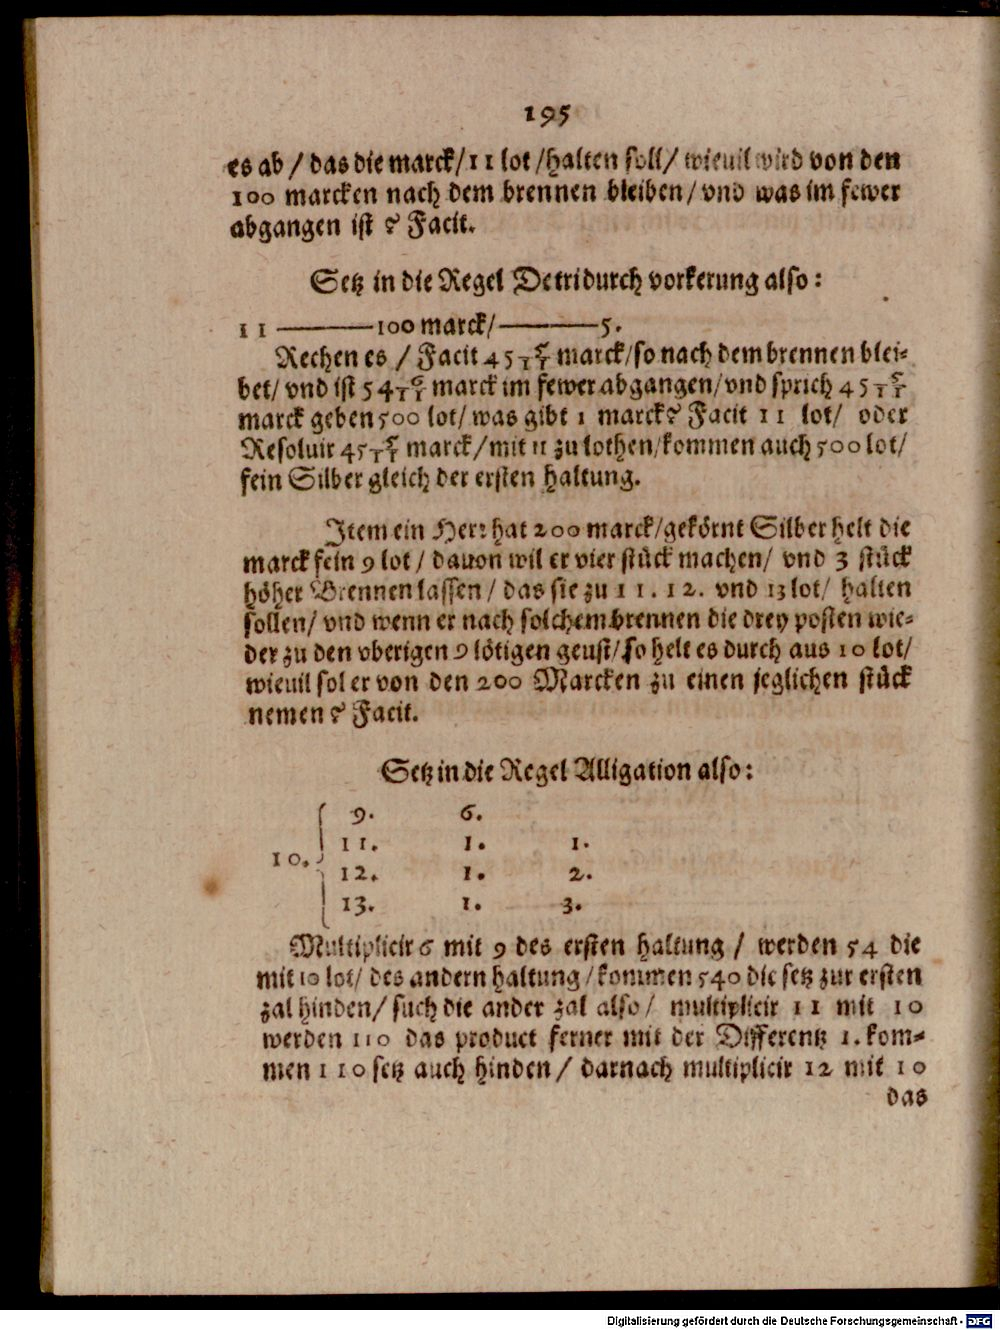 195
es ab / das die marck/ 11 lot /halten soll/ wieuil wird von den
100 marcken nach dem brennen bleiben/ vnd was im fewer
abgangen ist ? Facit.
Setz in die Regel Detri durch vorkerung also:
11 ——— 100 marck/ ——— 5.
Rechen es / Facit 45 5/11 marck/ so nach dem brennen blei-
bet/ vnd ist 54 6/11 marck im fewer abgangen/ vnd sprich 45 5/11
marck geben 500 lot/ was gibt 1 marck? Facit 11 lot/ oder
Resoluir 45 5/11 marck/ mit 11 zu lothen/ kommen auch 500 lot/
fein Silber gleich der ersten haltung.
Item ein Herr hat 200 marck/ gekörnt Silber helt die
marck fein 9 lot / dauon wil er vier stück machen/ vnd 3 stück
höher Brennen lassen / das sie zu 11. 12. vnd 13 lot/ halten
sollen/ vnd wenn er nach solchem brennen die drey posten wie-
der zu den vberigen 9 lötigen geust/ so helt es durch aus 10 lot/
wieuil sol er von den 200 Marcken zu einen jeglichen stück
nemen ? Facit.
Setz in die Regel Alligation also:
9. 6.
11. 1. 1.
10.
12. 1. 2.
13. 1. 3.
Multiplicir 6 mit 9 des ersten haltung / werden 54 die
mit 10 lot/ des andern haltung / kommen 540 die setz zur ersten
zal hinden/ such die ander zal also/ multiplicir 11 mit 10
werden 110 das product ferner mit der Differentz 1. kom-
men 110 setz auch hinden / darnach multiplicir 12 mit 10
das
Digitalisierung gefördert durch die Deutsche Forschungsgemeinschaft - DFG